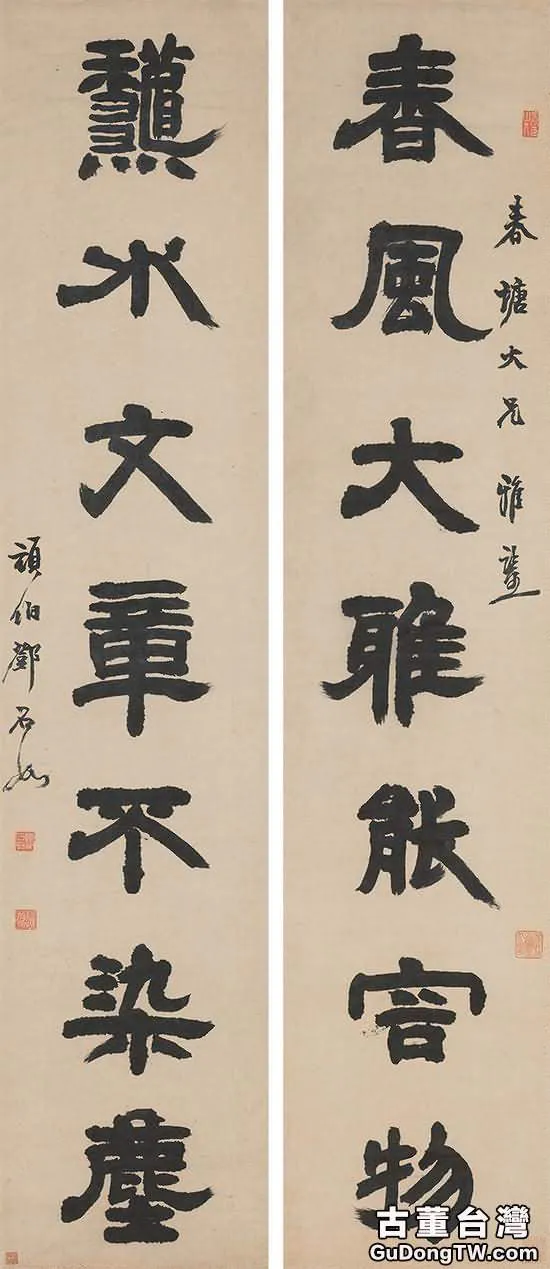 春塘大兄雅鑒
春風大雅能容物
龝水文章不染塵
頑伯鄧石如
古董台灣
GuDongTW.com